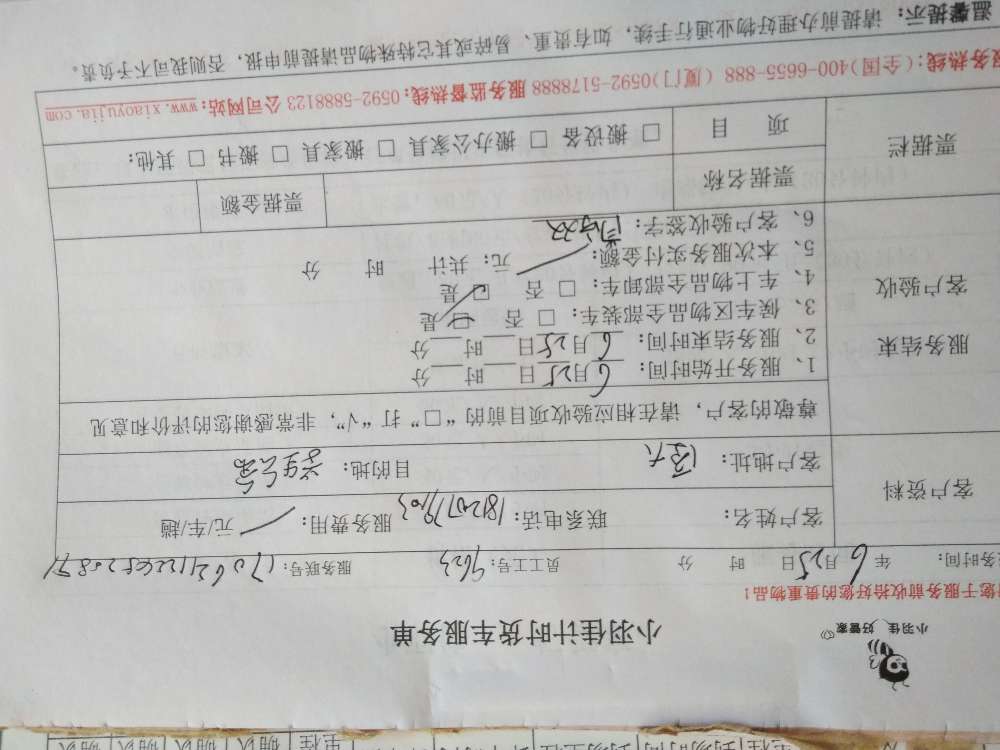 小羽佳 好管家
小羽佳计时货车服务单
您于服务前收拾好您的贵重物品！
务时间： 年 6 月 25 日 时 分 员工工号：9623 服务联号：
客户资料
客户姓名： 联系电话： 服务费用： 元/车/趟
客户地址： 目的地：学生公寓
尊敬的客户，请在相应验收项目前的“□”打“√”，非常感谢您的评价和意见
服务结束
客户验收
1、服务开始时间： 6 月 25 日 时 分
2、服务结束时间： 6 月 25 日 时 分
3、候车区物品全部装车：□ 否 □ 是
4、车上物品全部卸车：□ 否 □ 是
5、本次服务实付金额： 元；共计 时 分
6、客户验收签字：
票据栏
票据名称 票据金额
项 目 □ 搬设备 □ 搬办公家具 □ 搬家具 □ 搬书 □ 其他：
服务热线：(全国)400-6655-888 (厦门)0592-5178888 服务监督热线：0592-5888123 公司网站：www.xiaoyujia.com
温馨提示：请提前办理好物业通行手续，如有贵重、易碎或其它特殊物品请提前申报，否则我司不予负责。